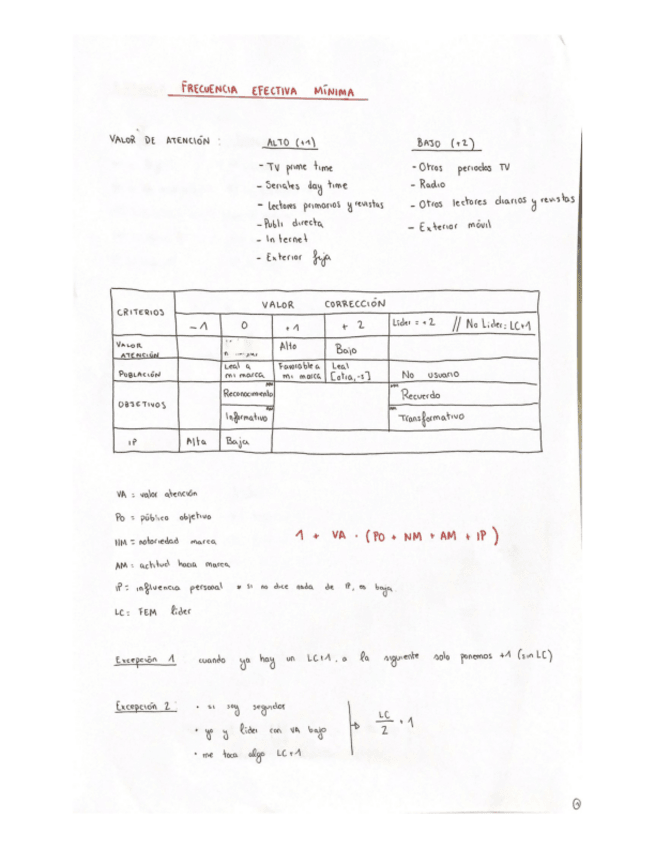 FRECUENCIA EFECTIVA MÍNIMA
VALOR DE ATENCIÓN : ALTO (+1) BAJO (+2)
- TV prime time - Otros periodos TV
- Seriales day time - Radio
- Lectores primarios y revistas - Otros lectores diarios y revistas
- Publi directa - Exterior móvil
- Internet
- Exterior fija
CRITERIOS VALOR CORRECCIÓN
-1 0 +1 +2 Líder = +2 // No Lider: LC+1
VALOR ATENCIÓN Alto Bajo
POBLACIÓN Leal a mi marca Favorable a mi marca Leal [otra, -1] No usuario
OBJETIVOS Reconocimiento NM Recuerdo
Informativo Transformativo
IP Alta Baja
VA = valor atención
PO = público objetivo
NM = notoriedad marca
1 + VA · (PO + NM + AM + IP)
AM = actitud hacia marca
IP = influencia personal * si no dice nada de IP, es baja
LC = FEM líder
Excepción 1 cuando ya hay un LC+1, a la siguiente solo ponemos +1 (sin LC)
Excepción 2 · si soy seguidor
· yo y líder con VA bajo
· me toca algo LC+1
LC/2 + 1